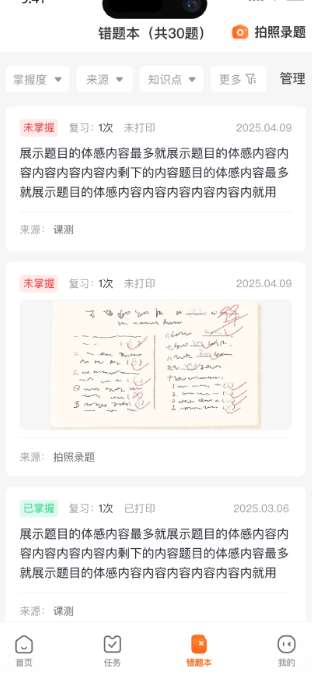 错题本（共30题）
拍照录题
掌握度
来源
知识点
更多
管理
未掌握 复习：1次 未打印 2025.04.09
展示题目的体感内容最多就展示题目的体感内容内
容内容内容内容内剩下的内容题目的体感内容最多
就展示题目的体感内容内容内容内容内容内就用
来源： 课测
未掌握 复习：1次 未打印 2025.04.09
来源： 拍照录题
已掌握 复习：1次 已打印 2025.03.06
展示题目的体感内容最多就展示题目的体感内容内
容内容内容内容内剩下的内容题目的体感内容最多
就展示题目的体感内容内容内容内容内容内就用
来源： 课测
首页
任务
错题本
我的